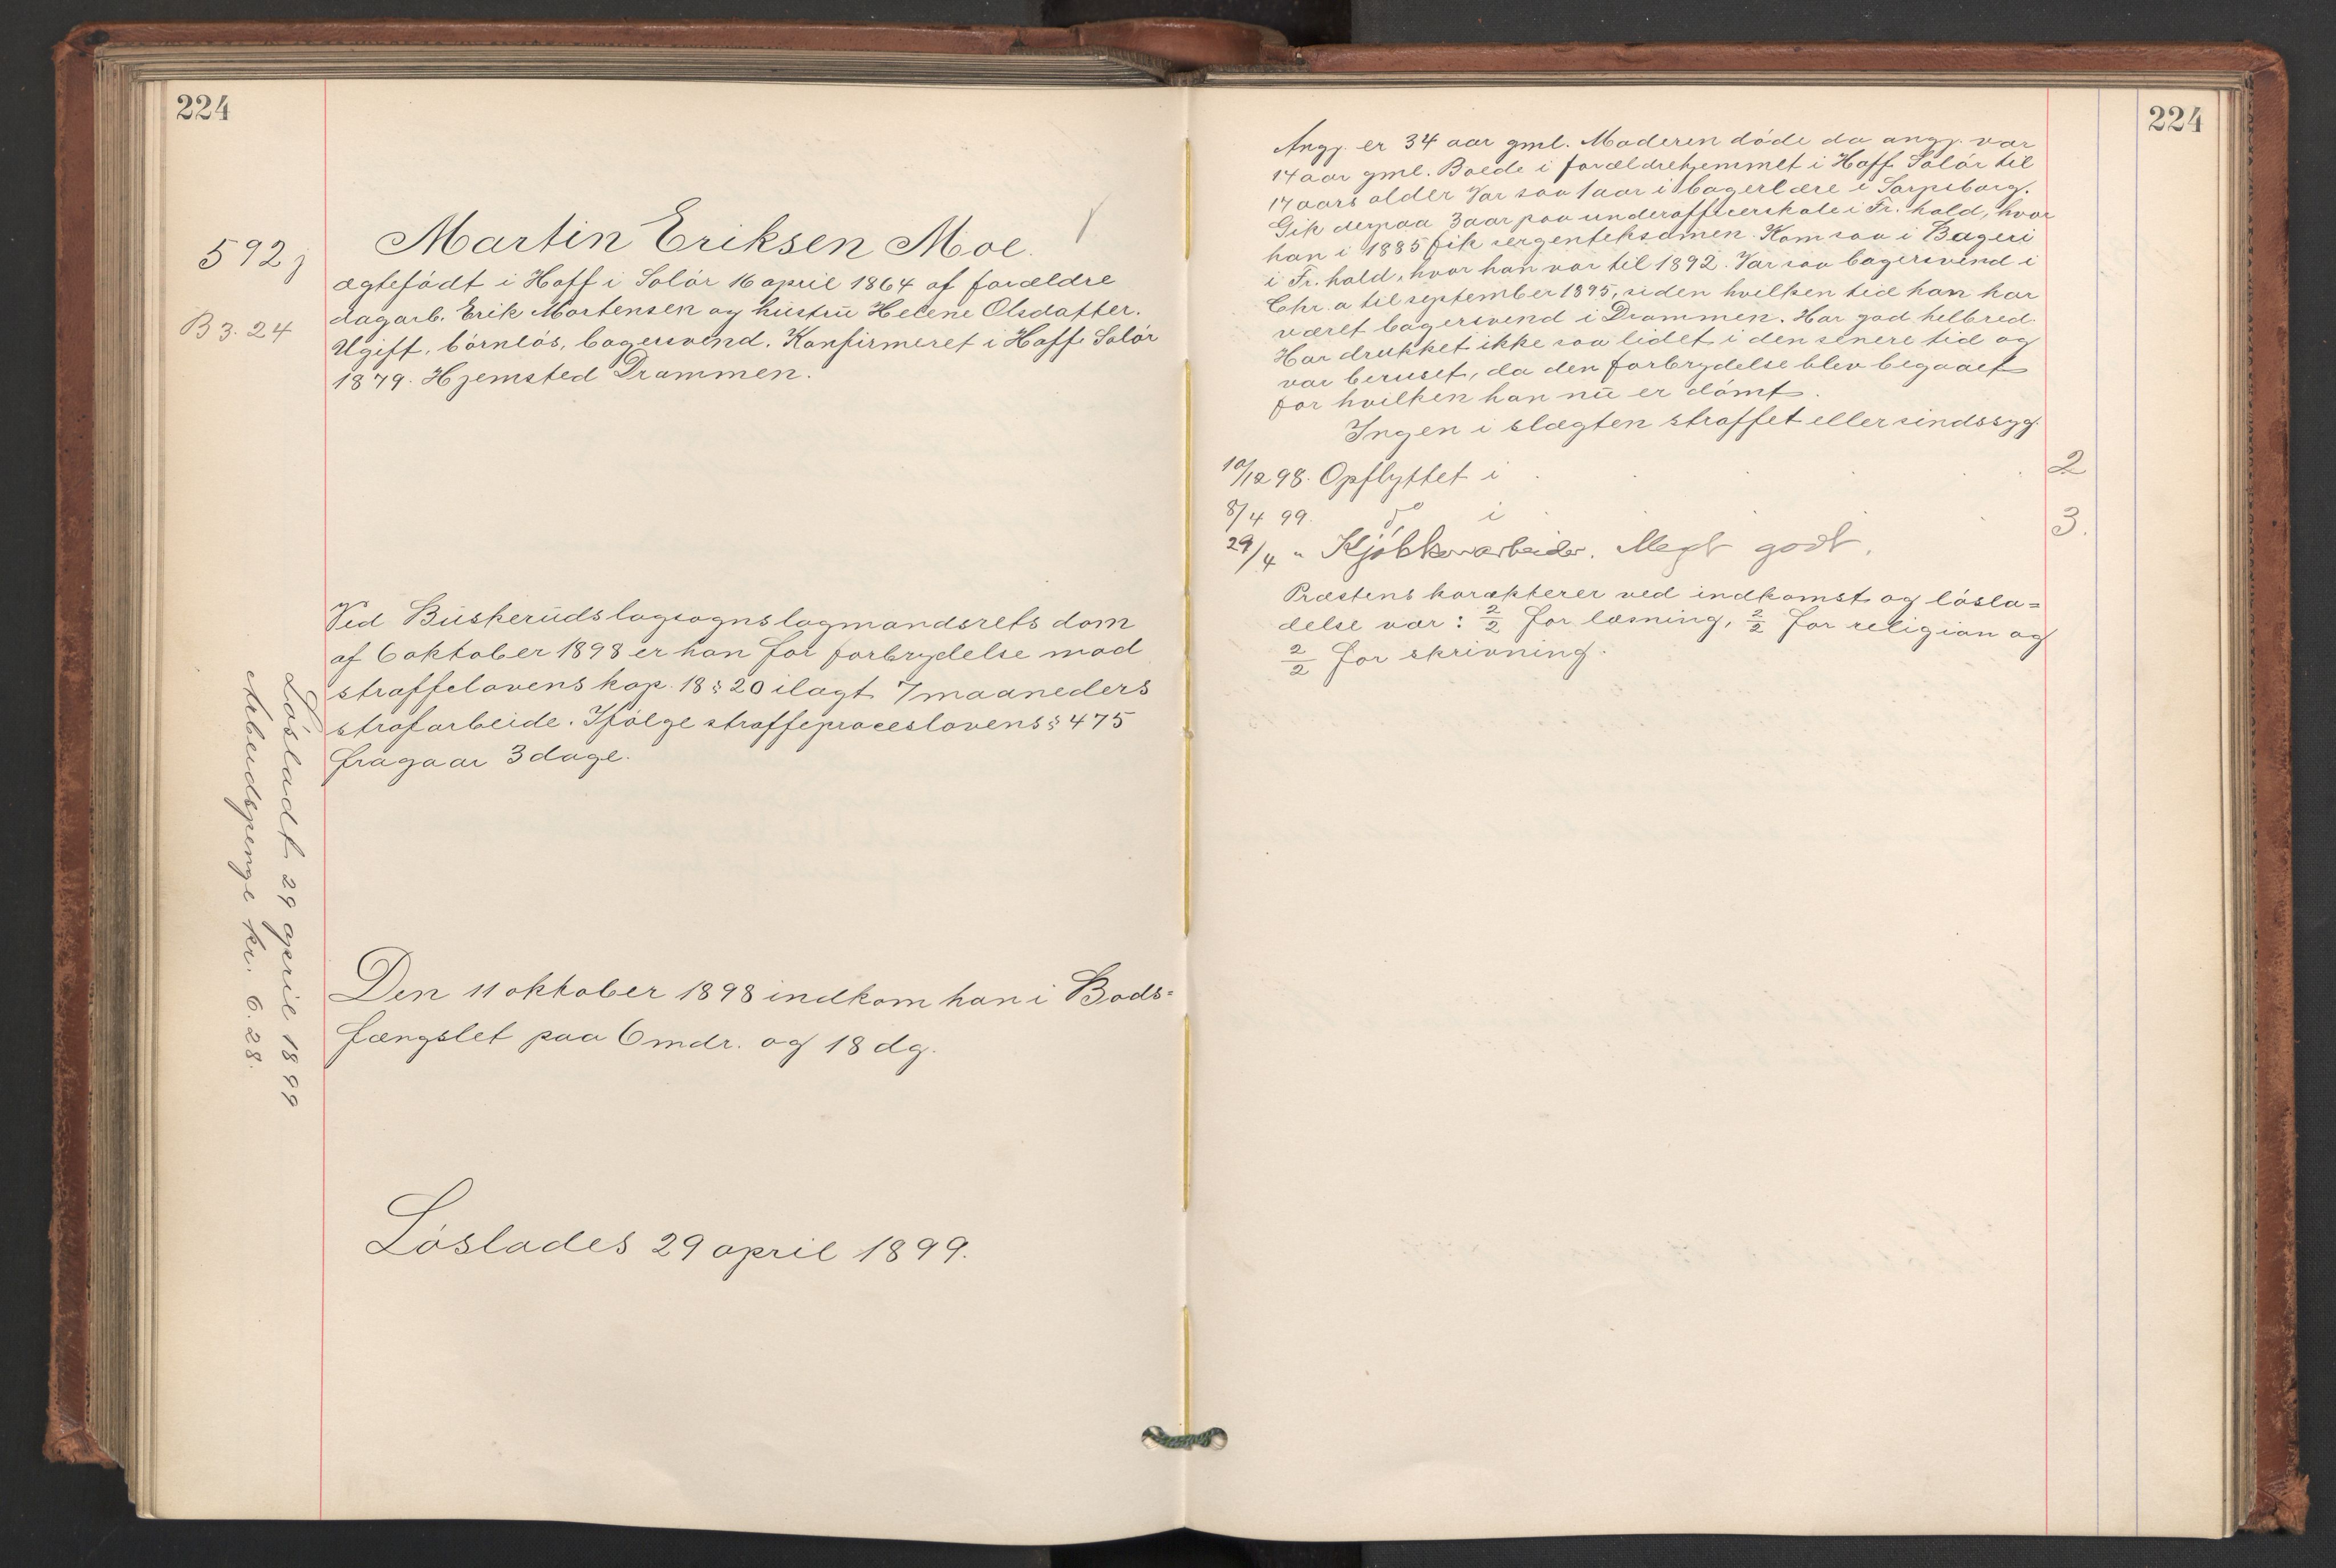 224
592 j
B 3. 24
Martin Eriksen Moe.
ægtefødt i Hoff i Solør 16 april 1864 af forældre
dagarb. Erik Mortensen og hustru Helene Olsdatter.
Ugift, børnløs, bagersvend. Konfirmeret i Hoff Solør
1879. Hjemsted Drammen.
Ved Buskeruds lagsogns lagmandsrets dom
af 6 oktober 1898 er han for forbrydelse mod
straffelovens kap. 18 § 20 ilagt 7 maaneders
strafarbeide. Ifølge straffeproceslovens § 475
fragaar 3 dage.
Løsladt 29 april 1899
Arbeidspenge kr. 6.28.
Den 11 oktober 1898 indkom han i Bods=
fængslet paa 6 mdr. og 18 dg.
Løslades 29 april 1899.
224
Angj. er 34 aar gml. Moderen døde da angj. var
14 aar gml. Boede i forældrehjemmet i Hoff Solør til
17 aars alder Var saa 1 aar i bagerlære i Sarpsborg.
Gik derpaa 3 aar paa underofficerskole i Fr. hald, hvor
han i 1885 fik sergenteksamen. Kom saa i Bageri
i Fr. hald, hvor han var til 1892. Var saa bagersvend i
Chr. a til september 1895, siden hvilken tid han har
været bagersvend i Drammen. Har god helbred.
Har drukket ikke saa lidet i den senere tid og
var beruset, da den forbrydelse blev begaaet
for hvilken han nu er dømt.
Ingen i slægten straffet eller sindssyg.
10/12 98. Opflyttet i 2
8/4 99. do i 3.
29/4 " Kjøkkenarbeider. Meget godt.
Præstens karakterer ved indkomst og løsla=
delse var: 2/2 for læsning, 2/2 for religion og
2/2 for skrivning.